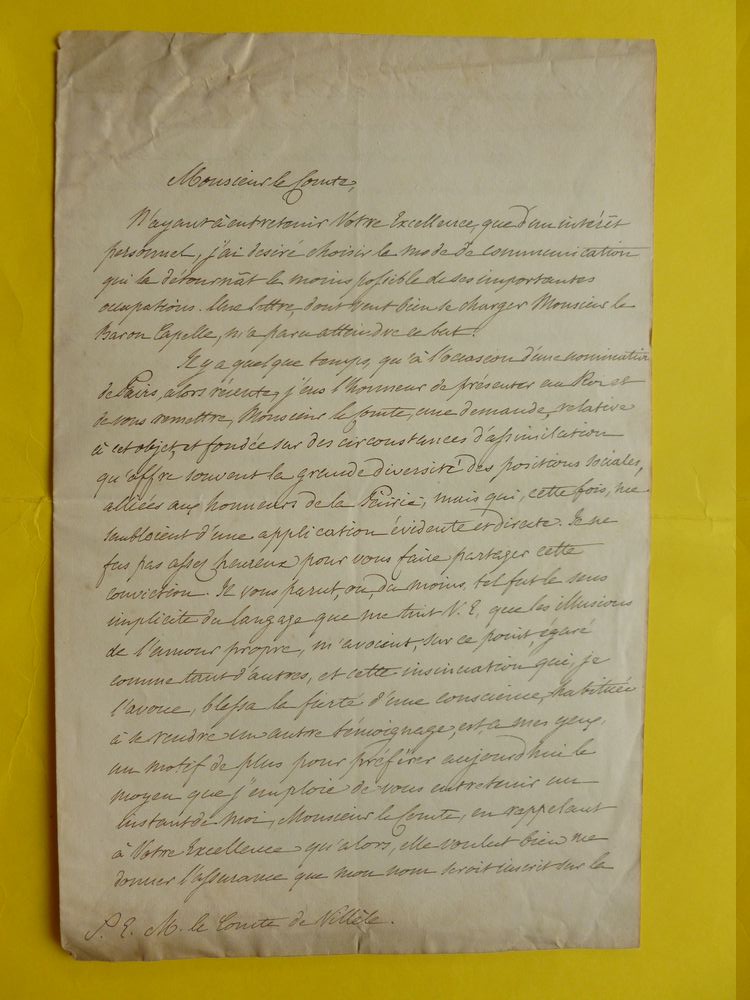 Monsieur le Comte,
N'ayant à entretenir Votre Excellence, que d'un intérêt
personnel, j'ai desiré choisir le mode de communication
qui la détournât le moins possible de ses importantes
occupations. Une lettre, dont veut bien se charger Monsieur le
Baron Capelle, m'a paru atteindre ce but.
Il y a quelque temps, qu'à l'occasion d'une nomination
de Pairs, alors récente, j'eus l'honneur de présenter au Roi et
de vous remettre, Monsieur le Comte, une demande, relative
à cet objet, et fondée sur des circonstances d'assimilation
qu'offre souvent la grande diversité des positions sociales,
alliées aux honneurs de la Pairie, mais qui, cette fois, me
sembloient d'une application évidente et directe. Je ne
fus pas assez heureux pour vous faire partager cette
conviction. Il vous parut, ou, du moins, tel fut le sens
implicite du langage que me tint V. E. que les illusions
de l'amour propre, m'avoient, sur ce point, égaré
comme tant d'autres, et cette insinuation qui, je
l'avoue, blessa la fierté d'une conscience, habituée
à se rendre un autre témoignage, est, à mes yeux,
un motif de plus pour préférer aujourd'hui le
moyen que j'emploie de vous entretenir un
instant de moi, Monsieur le Comte, en rappelant
à Votre Excellence qu'alors, elle voulut bien me
donner l'assurance que mon nom seroit inscrit sur la
S. E. M. le Comte de Villèle.